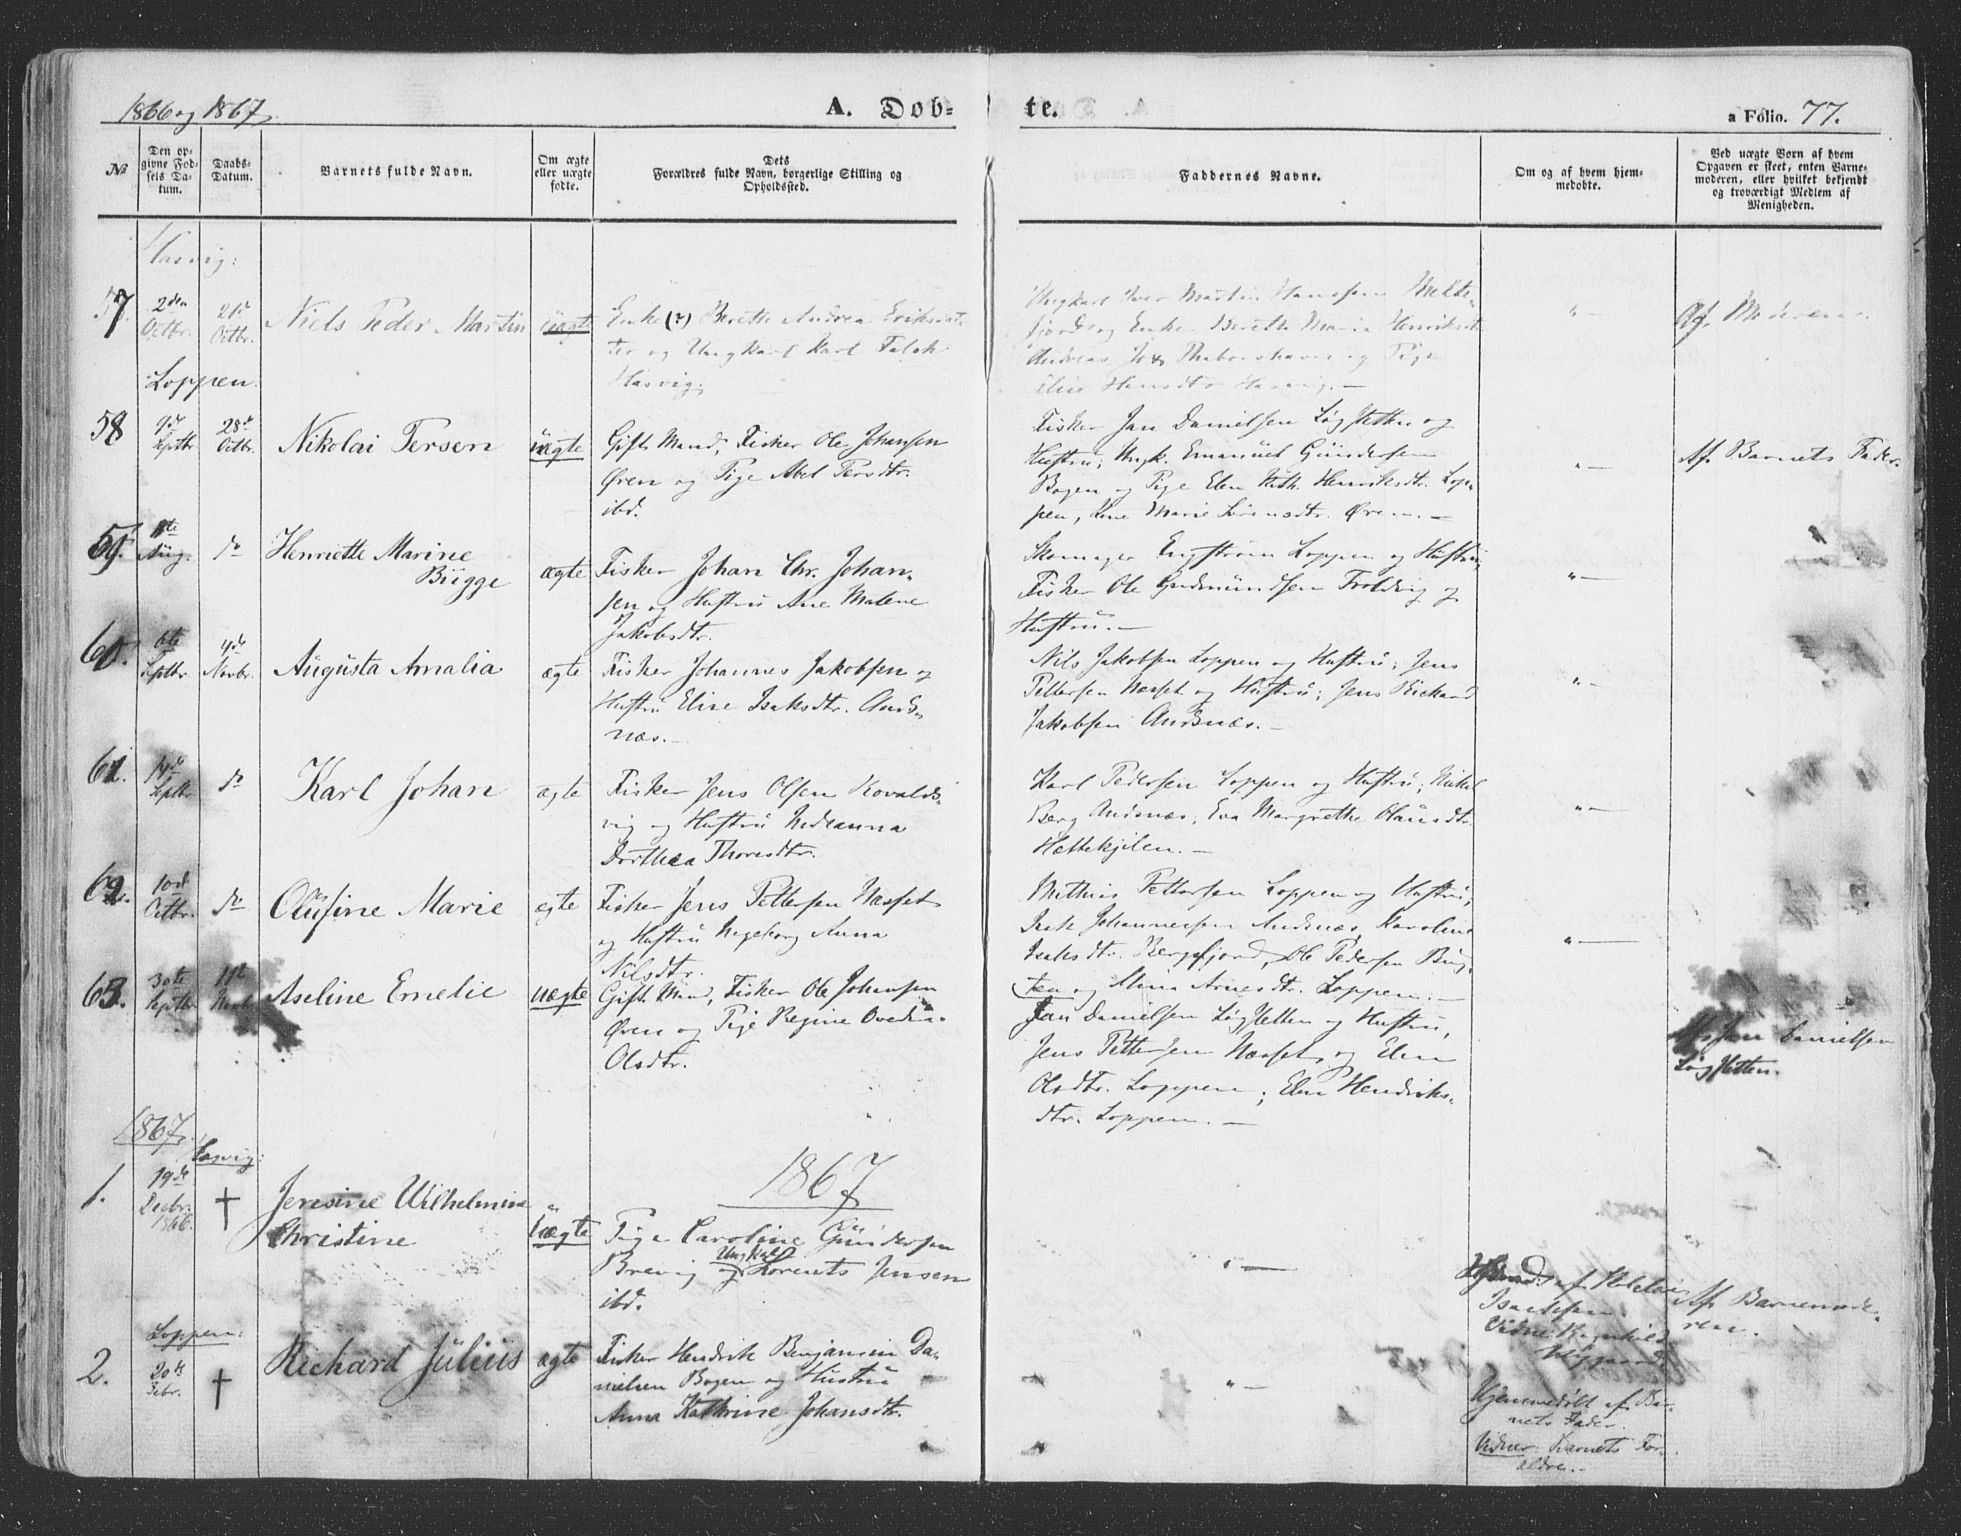 1866 og 1867.
A. Døb-
te.
a Folio. 77.
№
Den op-
givne Fød-
sels Da-
tum.
Daabs-
Datum.
Barnets fulde Navn.
Om ægte
eller uægte
fødte.
Dets
Forældres fulde Navn, borgerlige Stilling og
Opholdssted.
Faddernes Navne.
Om og af hvem hjem-
medøbte.
Ved uægte Børn af hvem
Opgaven er skeet, enten Barne-
moderen, eller hvilket bekjendt
og troværdigt Medlem af
Menigheden.
Hasvig:
57.
2den
Octbr.
21de
Octbr.
Niels Peder Martin
uægte
Enke (?) Berethe Andrea Eriksdat-
ter og Ungkarl Karl Falch
Hasvig.
Ungkarl Iver Martin Hansen Melke-
fjord og Enke Berethe Maria Henriksdt.
Andreas
og Pige
Hansdtr. Hasvig. —
" —
Af Moderen.
Loppen.
58
Septbr.
28de
Octbr.
Nikolai Persen
uægte
Gift Mand, Fisker Ole Johansen
Øren og Pige Abel Persdtr.
ibd.
Fisker Jan Danielsen Løgsletten og
Hustru; Ungk. Emanuel Gundersen
Bogen og Pige Elen Kath. Henriksdtr. Lop-
pen, Kone Marie Sørensdtr. Øren. —
" —
Af Barnets Fader.
59.
Aug.
do
Henriette Marine
Bugge
ægte
Fisker Johan Chr. Johan-
sen og Hustru Ane Malene
Jakobsdtr.
Skomager Engstrøm Loppen og Hustru,
Fisker Ole Gudmundsen Troldvig og
Hustru. —
" —
60.
6te
Septbr.
4de
Novbr.
Augusta Amalia
ægte
Fisker Johannes Jakobsen og
Hustru Eline Isaksdtr. Ands-
næs. —
Nils Jakobsen Loppen og Hustru; Jens
Pettersen Næsset og Hustru; Jens Richard
Jakobsen Andsnæs. —
" —
61.
14de
Septbr.
do
Karl Johan
ægte
Fisker Jens Olsen Kovalds-
vig og Hustru Indianna
Dorthea Thoresdtr.
Karl Pedersen Loppen og Hustru; Mikkel
Berg Andsnæs; Eva Margrethe Olausdtr.
Hættekjilen. —
" —
62.
10de
Octbr.
do
Olufine Marie
ægte
Fisker Jens Pettersen Næsset
og Hustru Ingeborg Anna
Nilsdtr.
Mathias Pettersen Loppen og Hustru,
Isak Johannessen Andsnæs, Karoline
Isaksdtr. Bergsfjord, Ole Pedersen Bug-
ten og Alina Arnesdtr. Loppen. —
" —
63.
30te
Septbr.
11te
Novbr.
Aseline Emelie
uægte
Gift Mand, Fisker Ole Johansen
Øren og Pige Regine Ovedia
Olsdtr.
Jan Danielsen Løgsletten og Hustru,
Jens Pettersen Næsset, og Elen
Olsdtr. Loppen; Elen Hendriks-
dtr. Loppen. —
Danielsen
Løgsletten.
1867.
Hasvig:
1867
1.
19de
Decbr.
1866.
†
Jensine Wilhelmine
Christine
Uægte
Pige Caroline Gundersen
Ungkarl
Brevig og Lorents Jensen
ibd.
" —
Isaksen.
Vidne Ragnhild
Af Barnemode-
ren.
Loppen:
2.
20de
Febr.
†
Richard Julius
ægte
Fisker Hendrik Benjamin Da-
nielsen Bogen og Hustru
Anna Kathrine Johansdtr.
" —
Hjemmedøbt af Bar-
nets Fader.
Vidner: Barnets For-
ældre. —